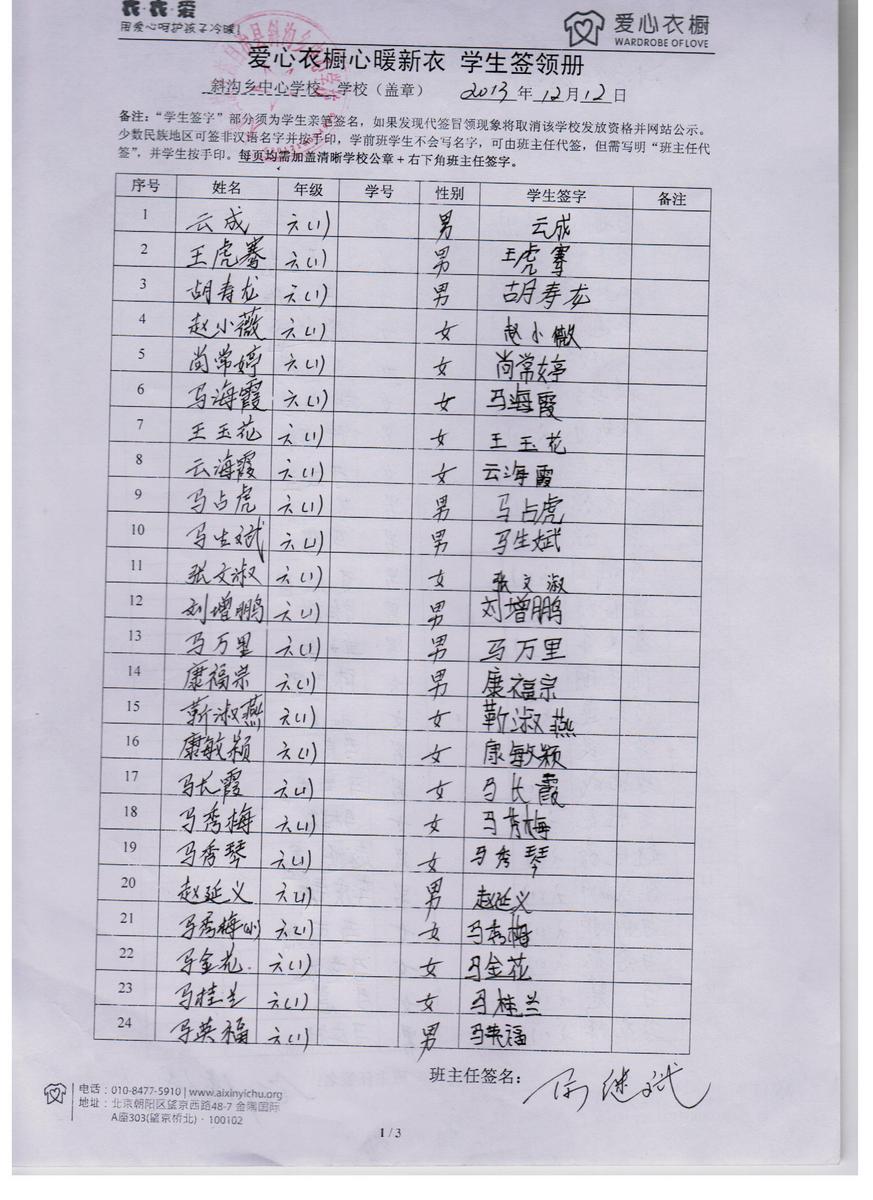 衣·衣·爱
用爱心呵护孩子冷暖!
爱心衣橱
WARDROBE OF LOVE
爱心衣橱心暖新衣 学生签领册
斜沟乡中心学校 学校（盖章） 2013年12月12日
备注：“学生签字”部分须为学生亲笔签名，如果发现代签冒领现象将取消该学校发放资格并网站公示。
少数民族地区可签非汉语名字并按手印，学前班学生不会写名字，可由班主任代签，但需写明“班主任代
签”，并学生按手印。每页均需加盖清晰学校公章+右下角班主任签字。
序号 姓名 年级 学号 性别 学生签字 备注
1 云成 六(1) 男 云成
2 王虎骞 六(1) 男 王虎骞
3 胡寿龙 六(1) 男 胡寿龙
4 赵小薇 六(1) 女 赵小薇
5 尚常婷 六(1) 女 尚常婷
6 马海霞 六(1) 女 马海霞
7 王玉花 六(1) 女 王玉花
8 云海霞 六(1) 女 云海霞
9 马占虎 六(1) 男 马占虎
10 马生斌 六(1) 男 马生斌
11 张文淑 六(1) 女 张文淑
12 刘增鹏 六(1) 男 刘增鹏
13 马万里 六(1) 男 马万里
14 康福宗 六(1) 男 康福宗
15 靳淑燕 六(1) 女 靳淑燕
16 康敏颖 六(1) 女 康敏颖
17 马长霞 六(1) 女 马长霞
18 马秀梅 六(1) 女 马秀梅
19 马秀琴 六(1) 女 马秀琴
20 赵延义 六(1) 男 赵延义
21 马秀梅(小) 六(1) 女 马秀梅
22 马金花 六(1) 女 马金花
23 马桂兰 六(1) 女 马桂兰
24 马英福 六(1) 男 马英福
班主任签名： 继斌
电话：010-8477-5910 | www.aixinyichu.org
地址：北京朝阳区望京西路48-7 金隅国际
A座303(望京桥北)·100102
1 / 3